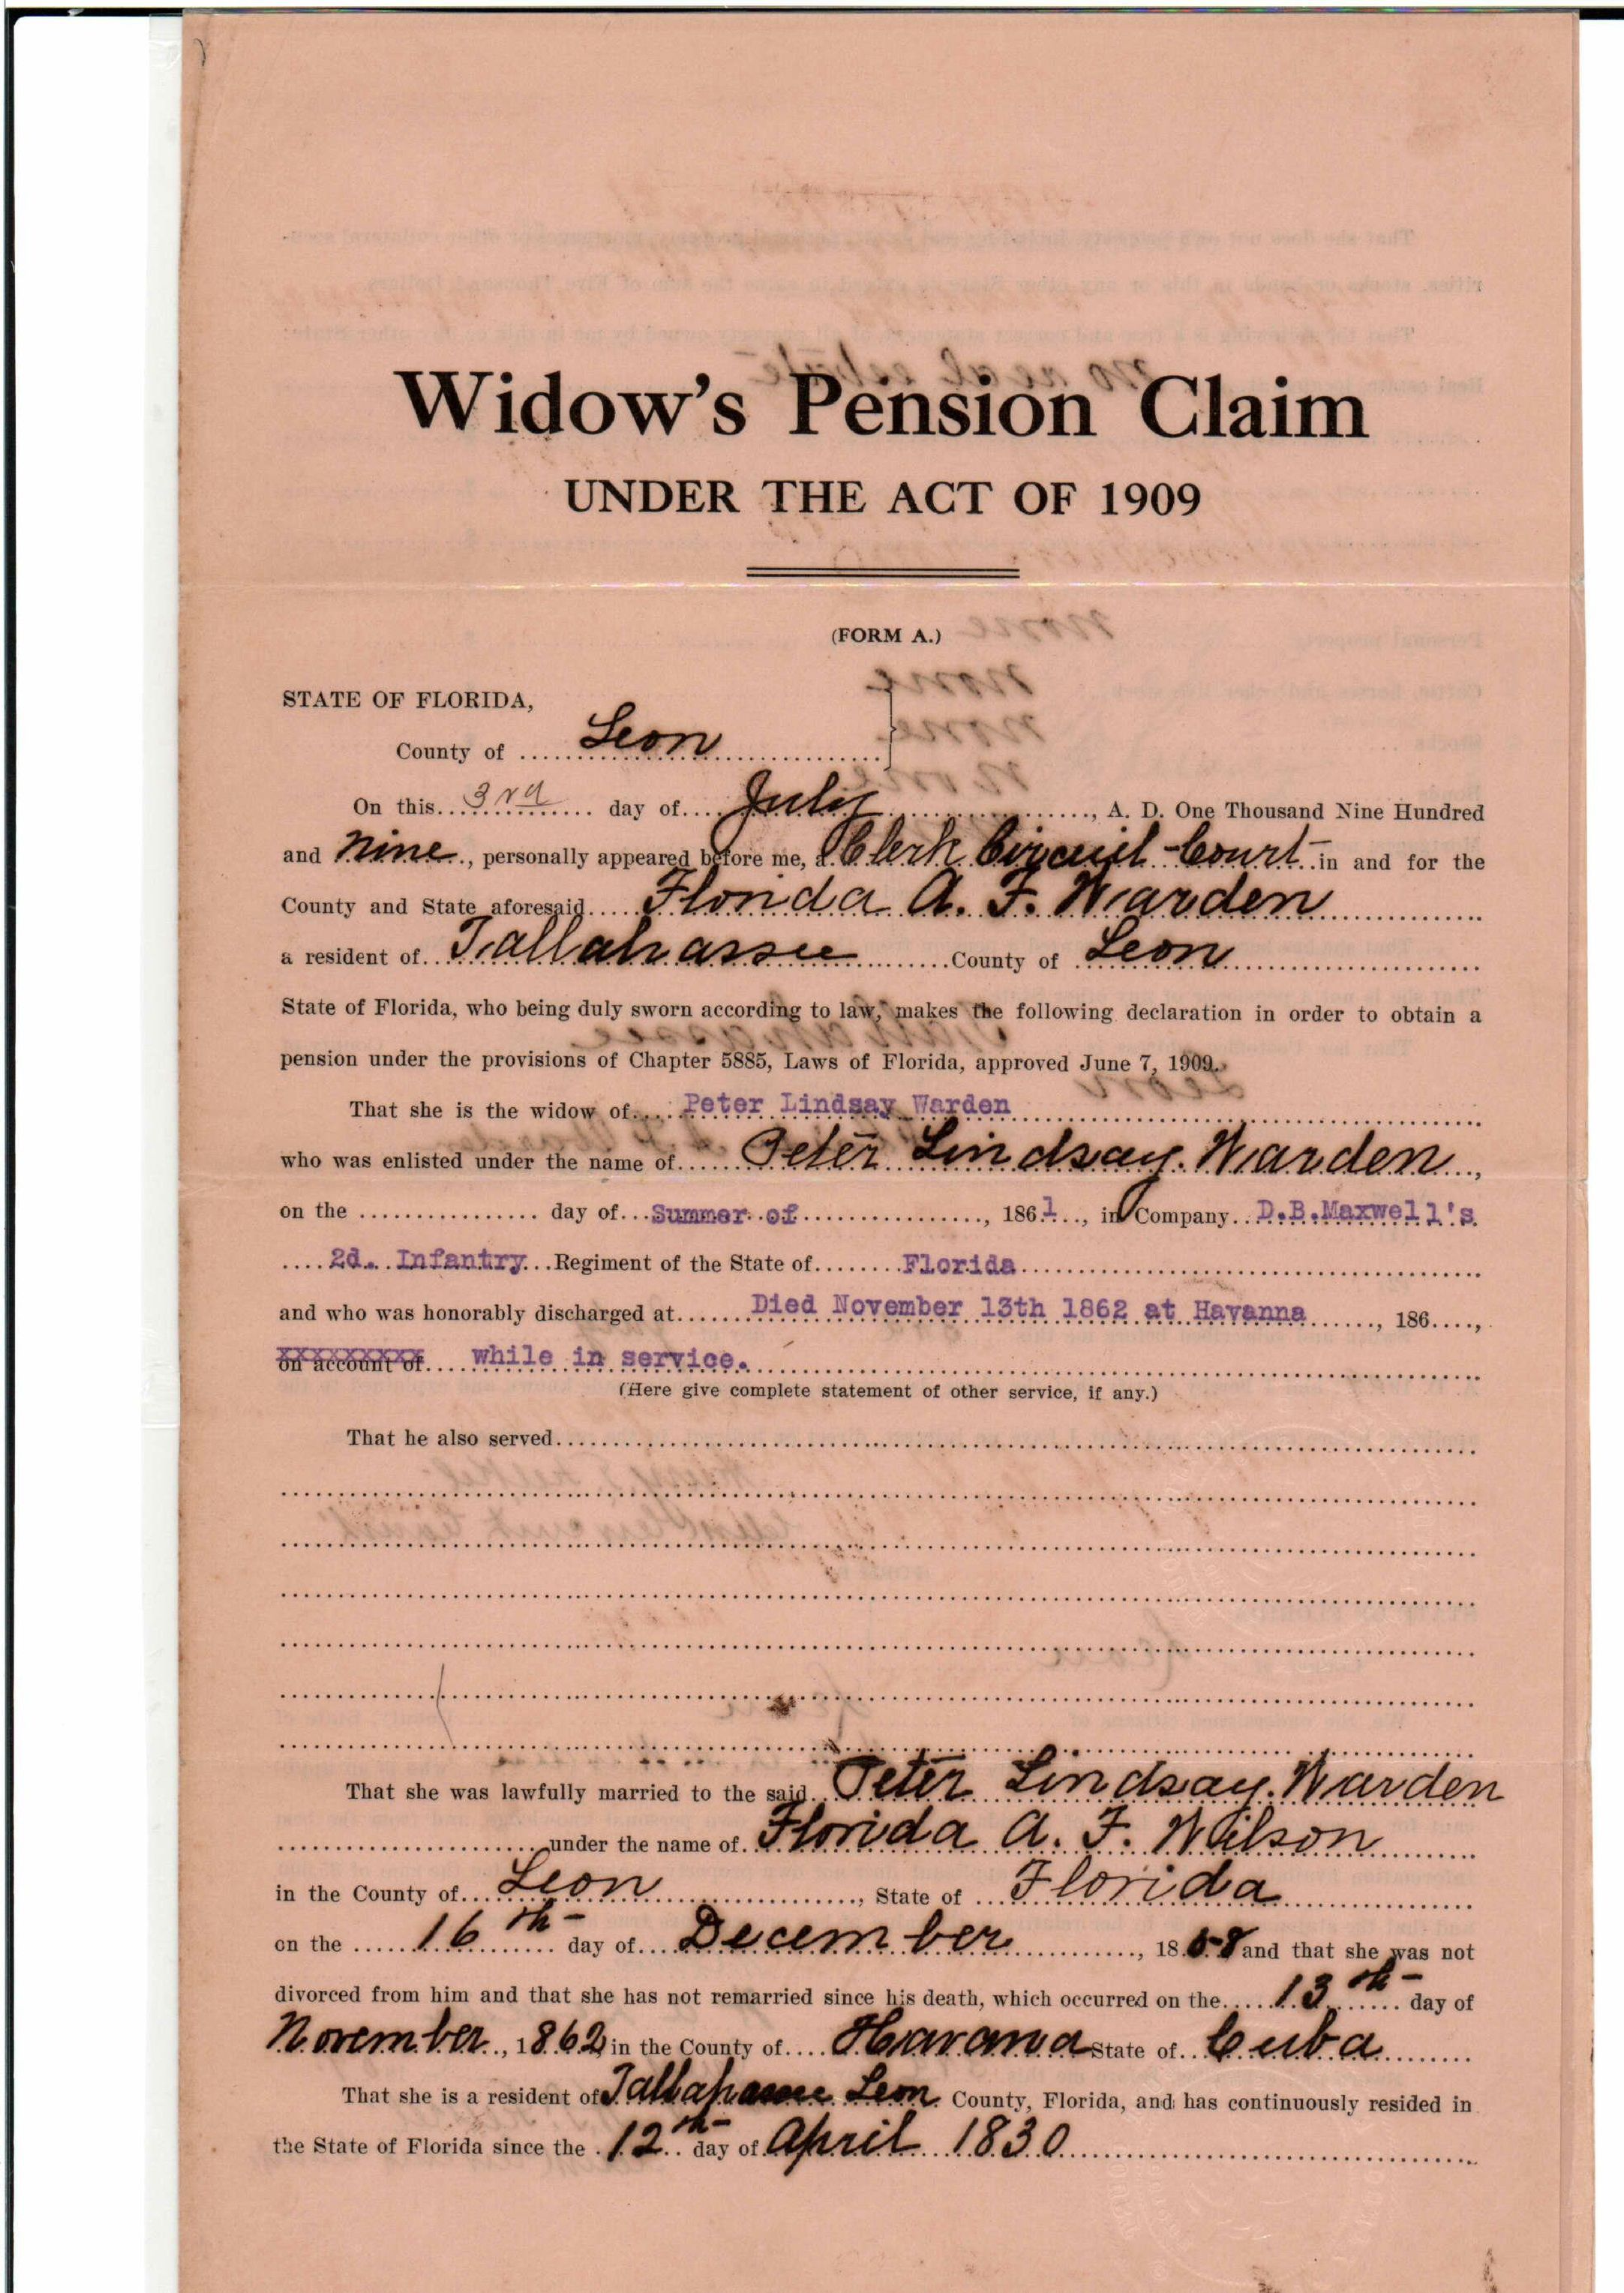 Widow's Pension Claim
UNDER THE ACT OF 1909
(FORM A.)
STATE OF FLORIDA,
County of Leon
On this 3rd day of July, A. D. One Thousand Nine Hundred
and nine, personally appeared before me, a Clerk Circuit Court in and for the
County and State aforesaid Florida A. F. Warden
a resident of Tallahassee County of Leon
State of Florida, who being duly sworn according to law, makes the following declaration in order to obtain a
pension under the provisions of Chapter 5885, Laws of Florida, approved June 7, 1909.
That she is the widow of Peter Lindsay Warden
who was enlisted under the name of Peter Lindsay Warden,
on the day of Summer of, 1861, in Company D.B.Maxwell's
2d. Infantry Regiment of the State of Florida
and who was honorably discharged at Died November 13th 1862 at Havanna, 186,
on account of while in service.
(Here give complete statement of other service, if any.)
That he also served
That she was lawfully married to the said Peter Lindsay Warden
under the name of Florida A. F. Wilson
in the County of Leon, State of Florida
on the 16th day of December, 1858 and that she was not
divorced from him and that she has not remarried since his death, which occurred on the 13th day of
November, 1862 in the County of Havana State of Cuba
That she is a resident of Tallahassee Leon County, Florida, and has continuously resided in
the State of Florida since the 12th day of April 1830